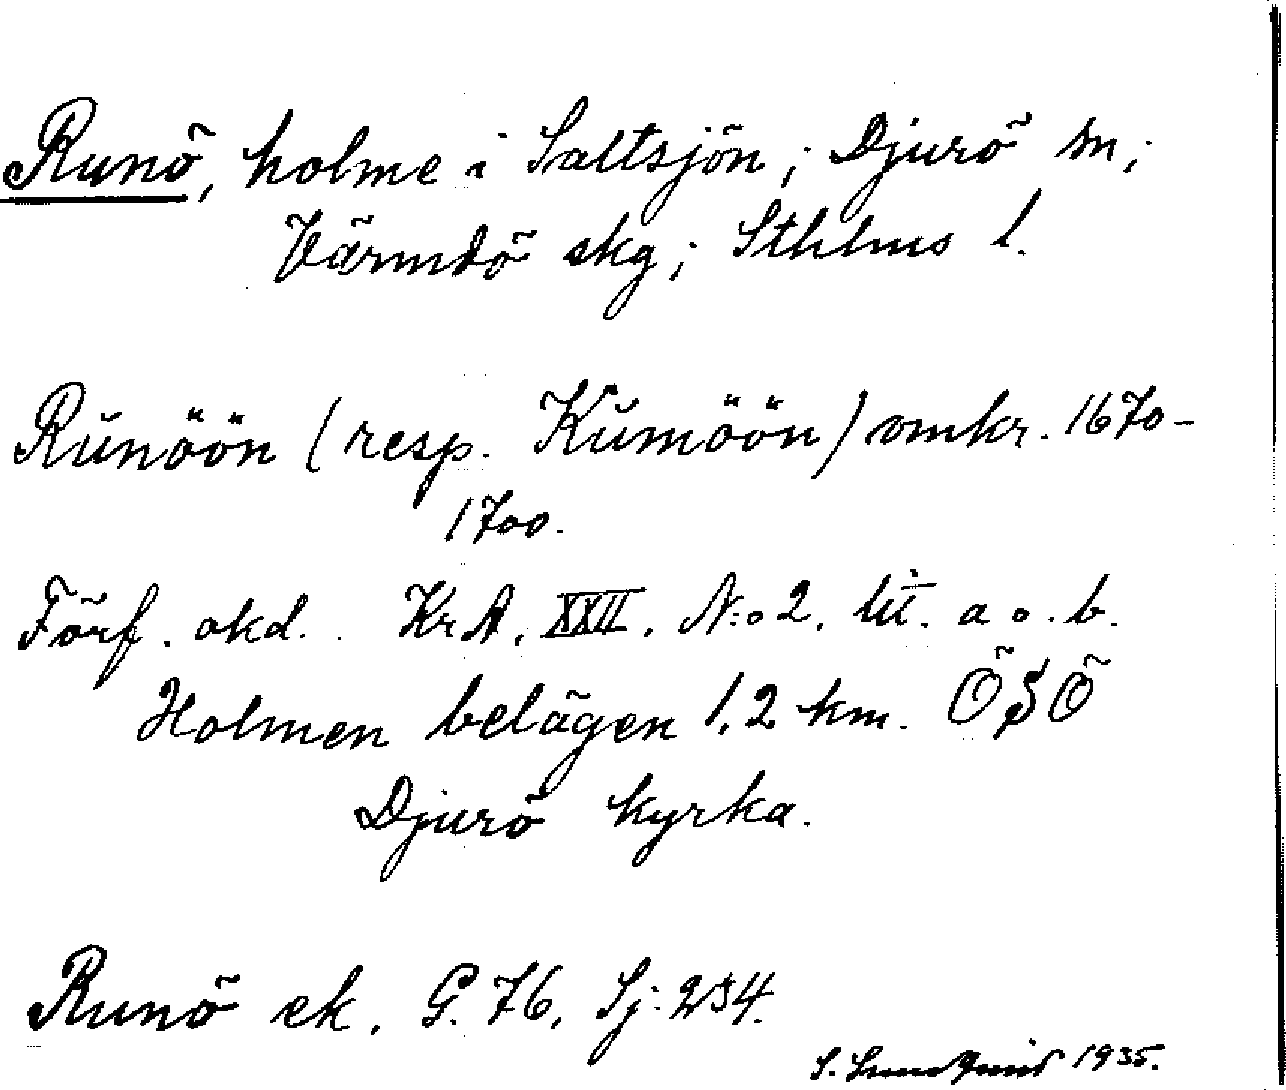 Runö, holme i Saltsjön; Djurö sn;
Värmdö skg; Sthlms l.
Runöön (resp. Kumöön) omkr. 1670-
1700.
Förf. okd. KrA, XXII. N:o 2. lit. a o. b.
Holmen belägen 1,2 km. ÖSÖ
Djurö kyrka.
Runö ek. G. 76, Sj: 234.
S. 1935.